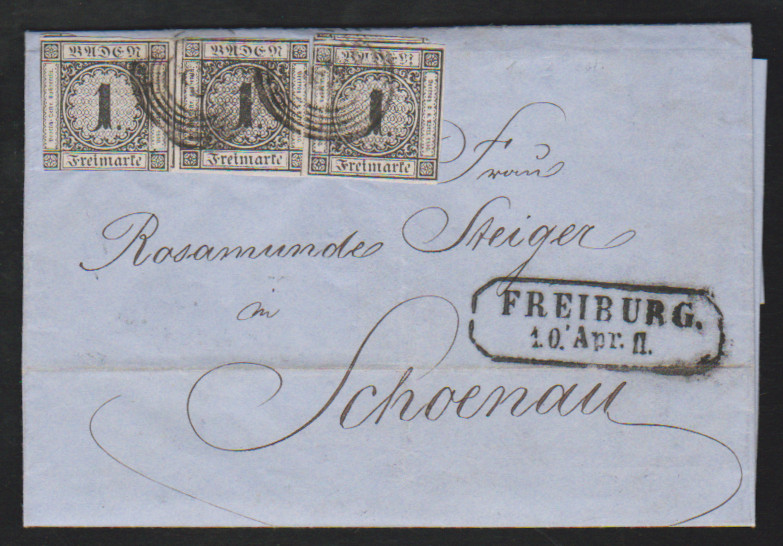 BADEN
1.
Freimarke
BADEN
1
Freimarke
BADEN
1.
Freimarke
Frau
Rosamunde Steiger
in
Schoenau
FREIBURG.
10. Apr. II.